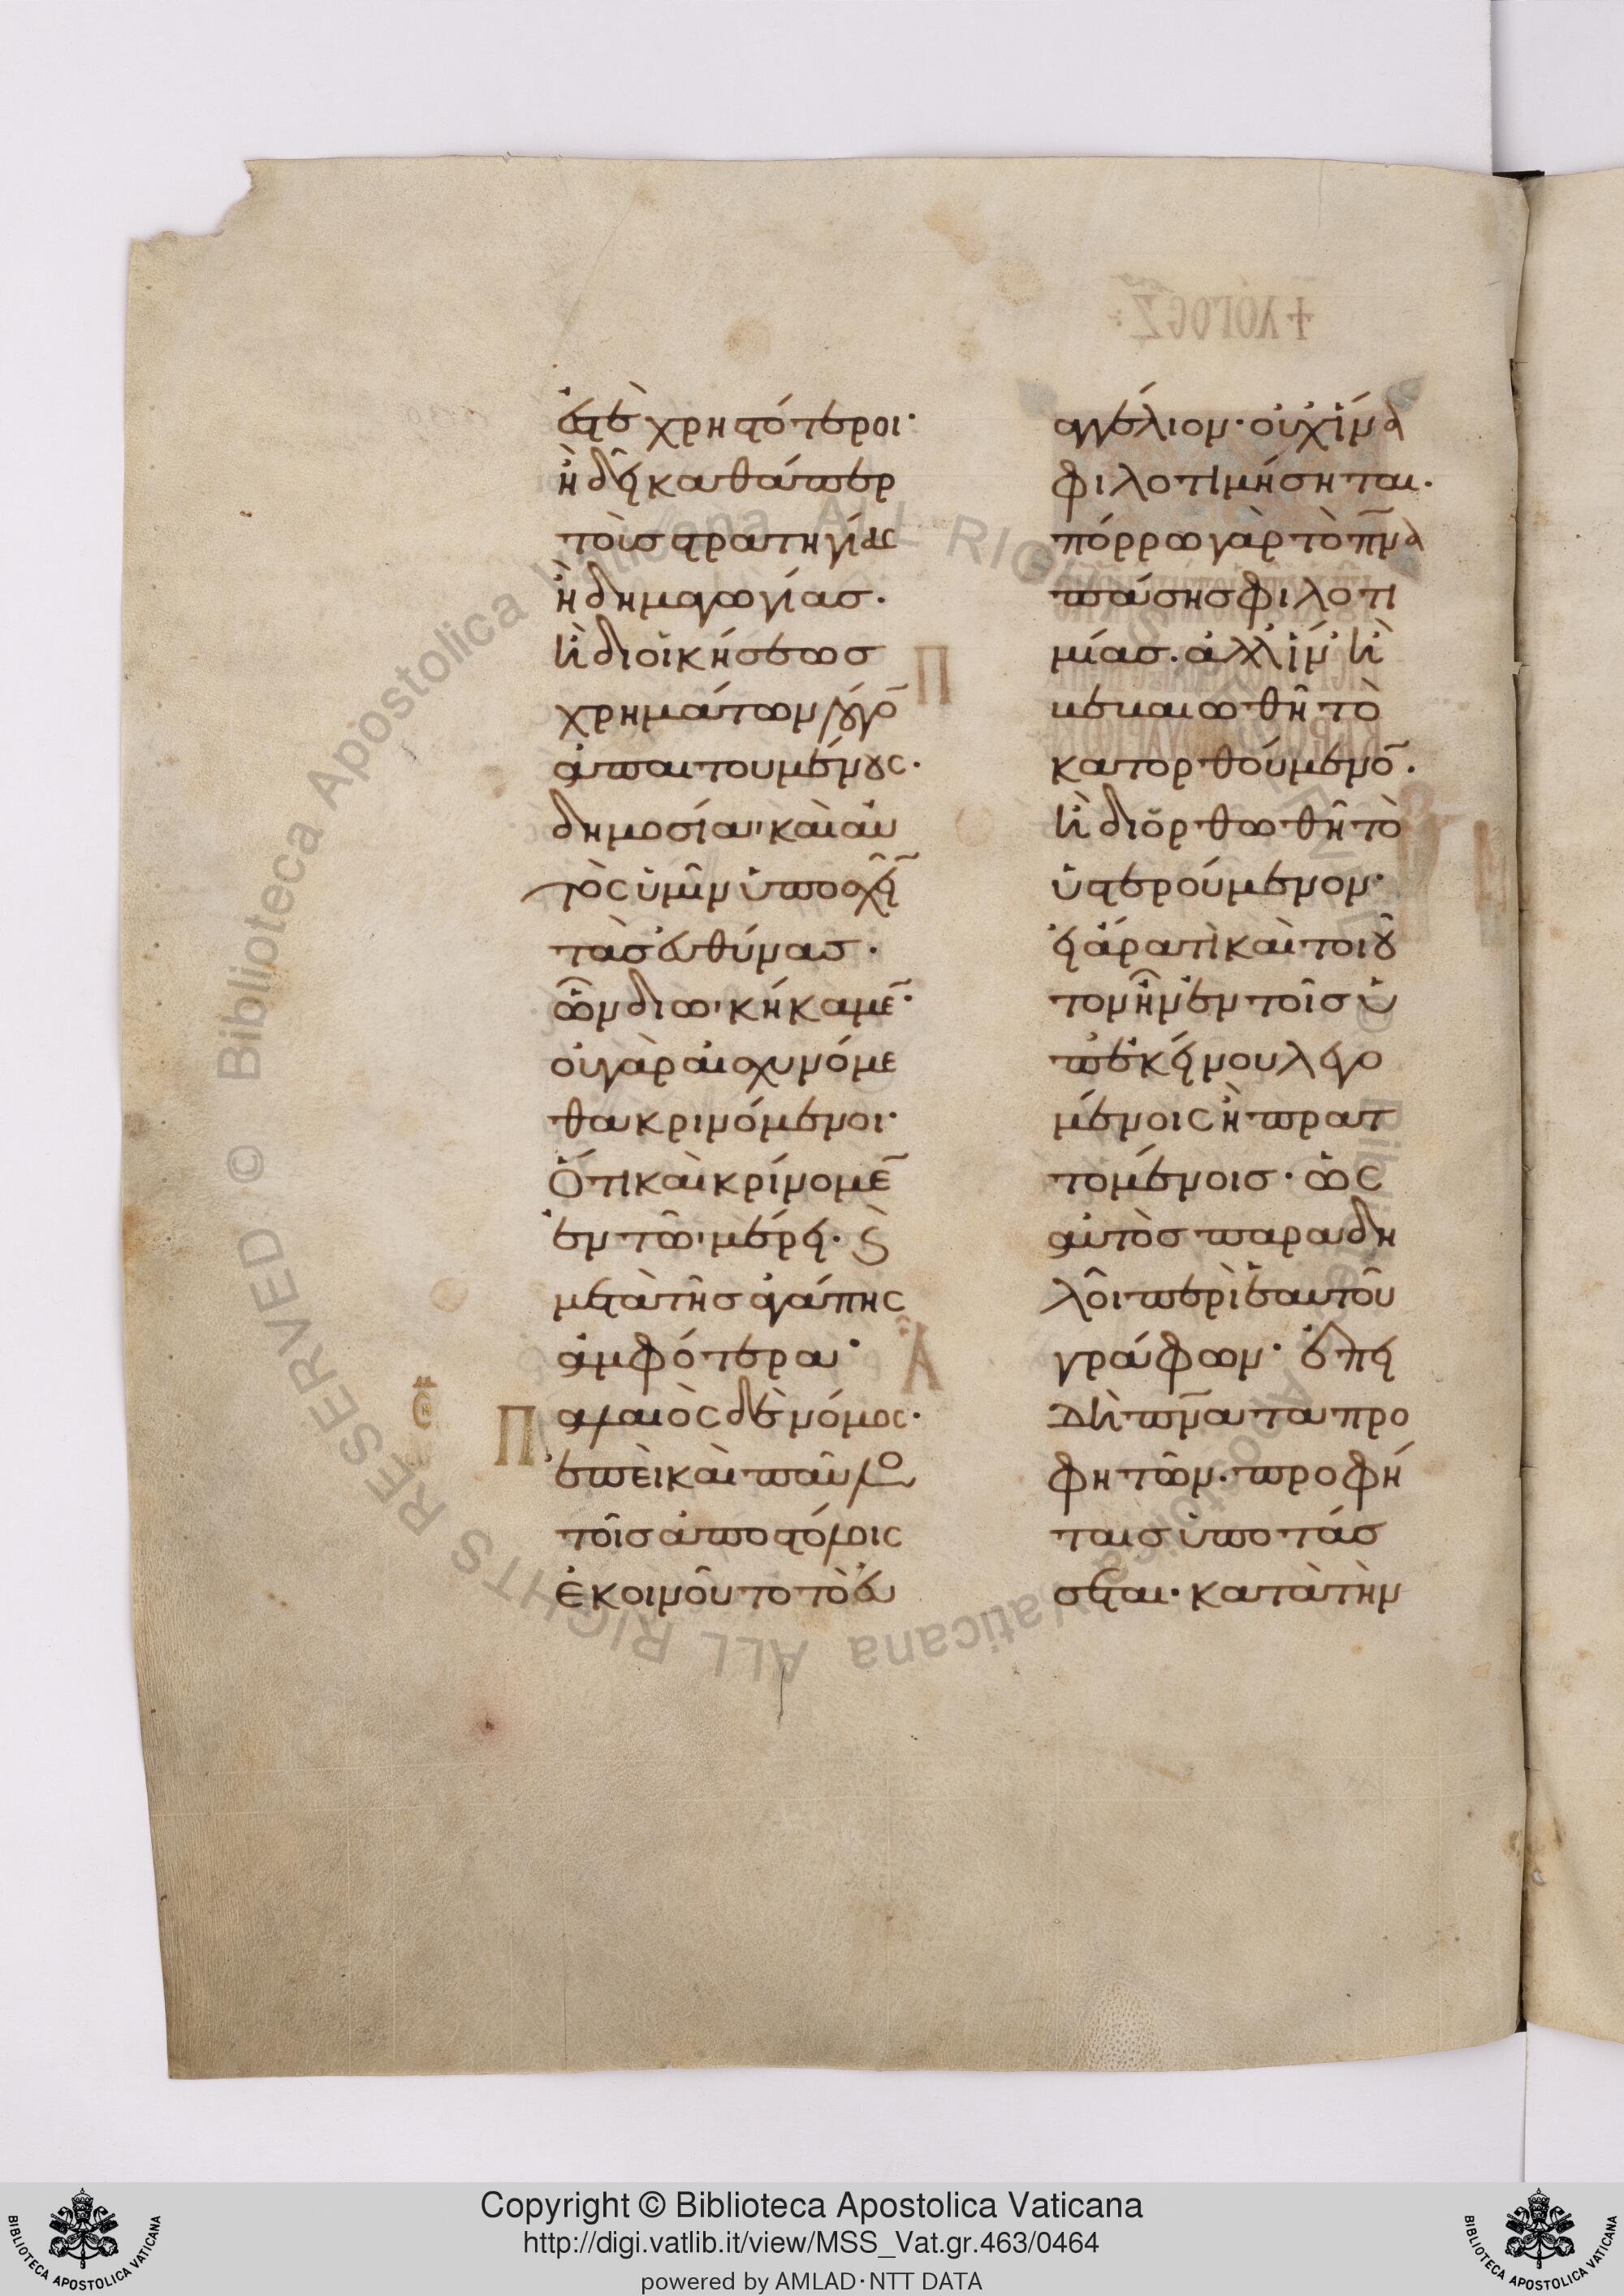 ἐστὲ χρηστότεροι·
ἢ δεῖ καθάπερ
τοὺς στρατηγίας
ἢ δημαγωγίας·
ἢ διοικήσεως
χρημάτων λόγο̄
ἀπαιτουμένους·
δημοσίαι καὶ αὐ
τὸς ὑμῖν ὑποσχεῖ̄
τὰς εὐθύνας·
ὧν διωικήκαμε̄·
οὐ γὰρ αἰσχυνόμε
θα κρινόμενοι·
Ὅτι καὶ κρίνομε̄
ἐν τῶι μέρει· ϗ
μετὰ τῆς ἀγάπης
ἀμφότερα·
Παλαιὸς δὲ νόμος·
ἐπεὶ καὶ παῦλο
τοῖς ἀποστόλοις
ἐκοινοῦτο τὸ εὐ
αγγέλιον· οὐχ ἵνα
φιλοτιμήσηται·
πόρρω γὰρ τὸ π̄ν̄α
πάσης φιλοτι
μίας· ἀλλ ἵν ἢ
βεβαιωθῆ τὸ
κατορθούμενο̄·
ἢ διορθωθῆ τὸ
ὑστερούμενον·
εἰ ἄρα τὶ καὶ τοιοῦ
τον ἦν ἐν τοῖς ὑ
π ἐκείνου λεγο
μένοις ἢ πρατ
τομένοις· ὡς
αὐτὸς παραδη
λοῖ περὶ ἑαυτοῦ
γράφων· ἐπεὶ
δὴ π̄ν̄ατα προ
φητῶν· προφή
ταις ὑποτάσ
σεται· κατὰ τὴν
Copyright © Biblioteca Apostolica Vaticana
http://digi.vatlib.it/view/MSS_Vat.gr.463/0464
powered by AMLAD·NTT DATA
BIBLIOTECA APOSTOLICA VATICANA
BIBLIOTECA APOSTOLICA VATICANA
© Biblioteca Apostolica Vaticana ALL RIGHTS RESERVED